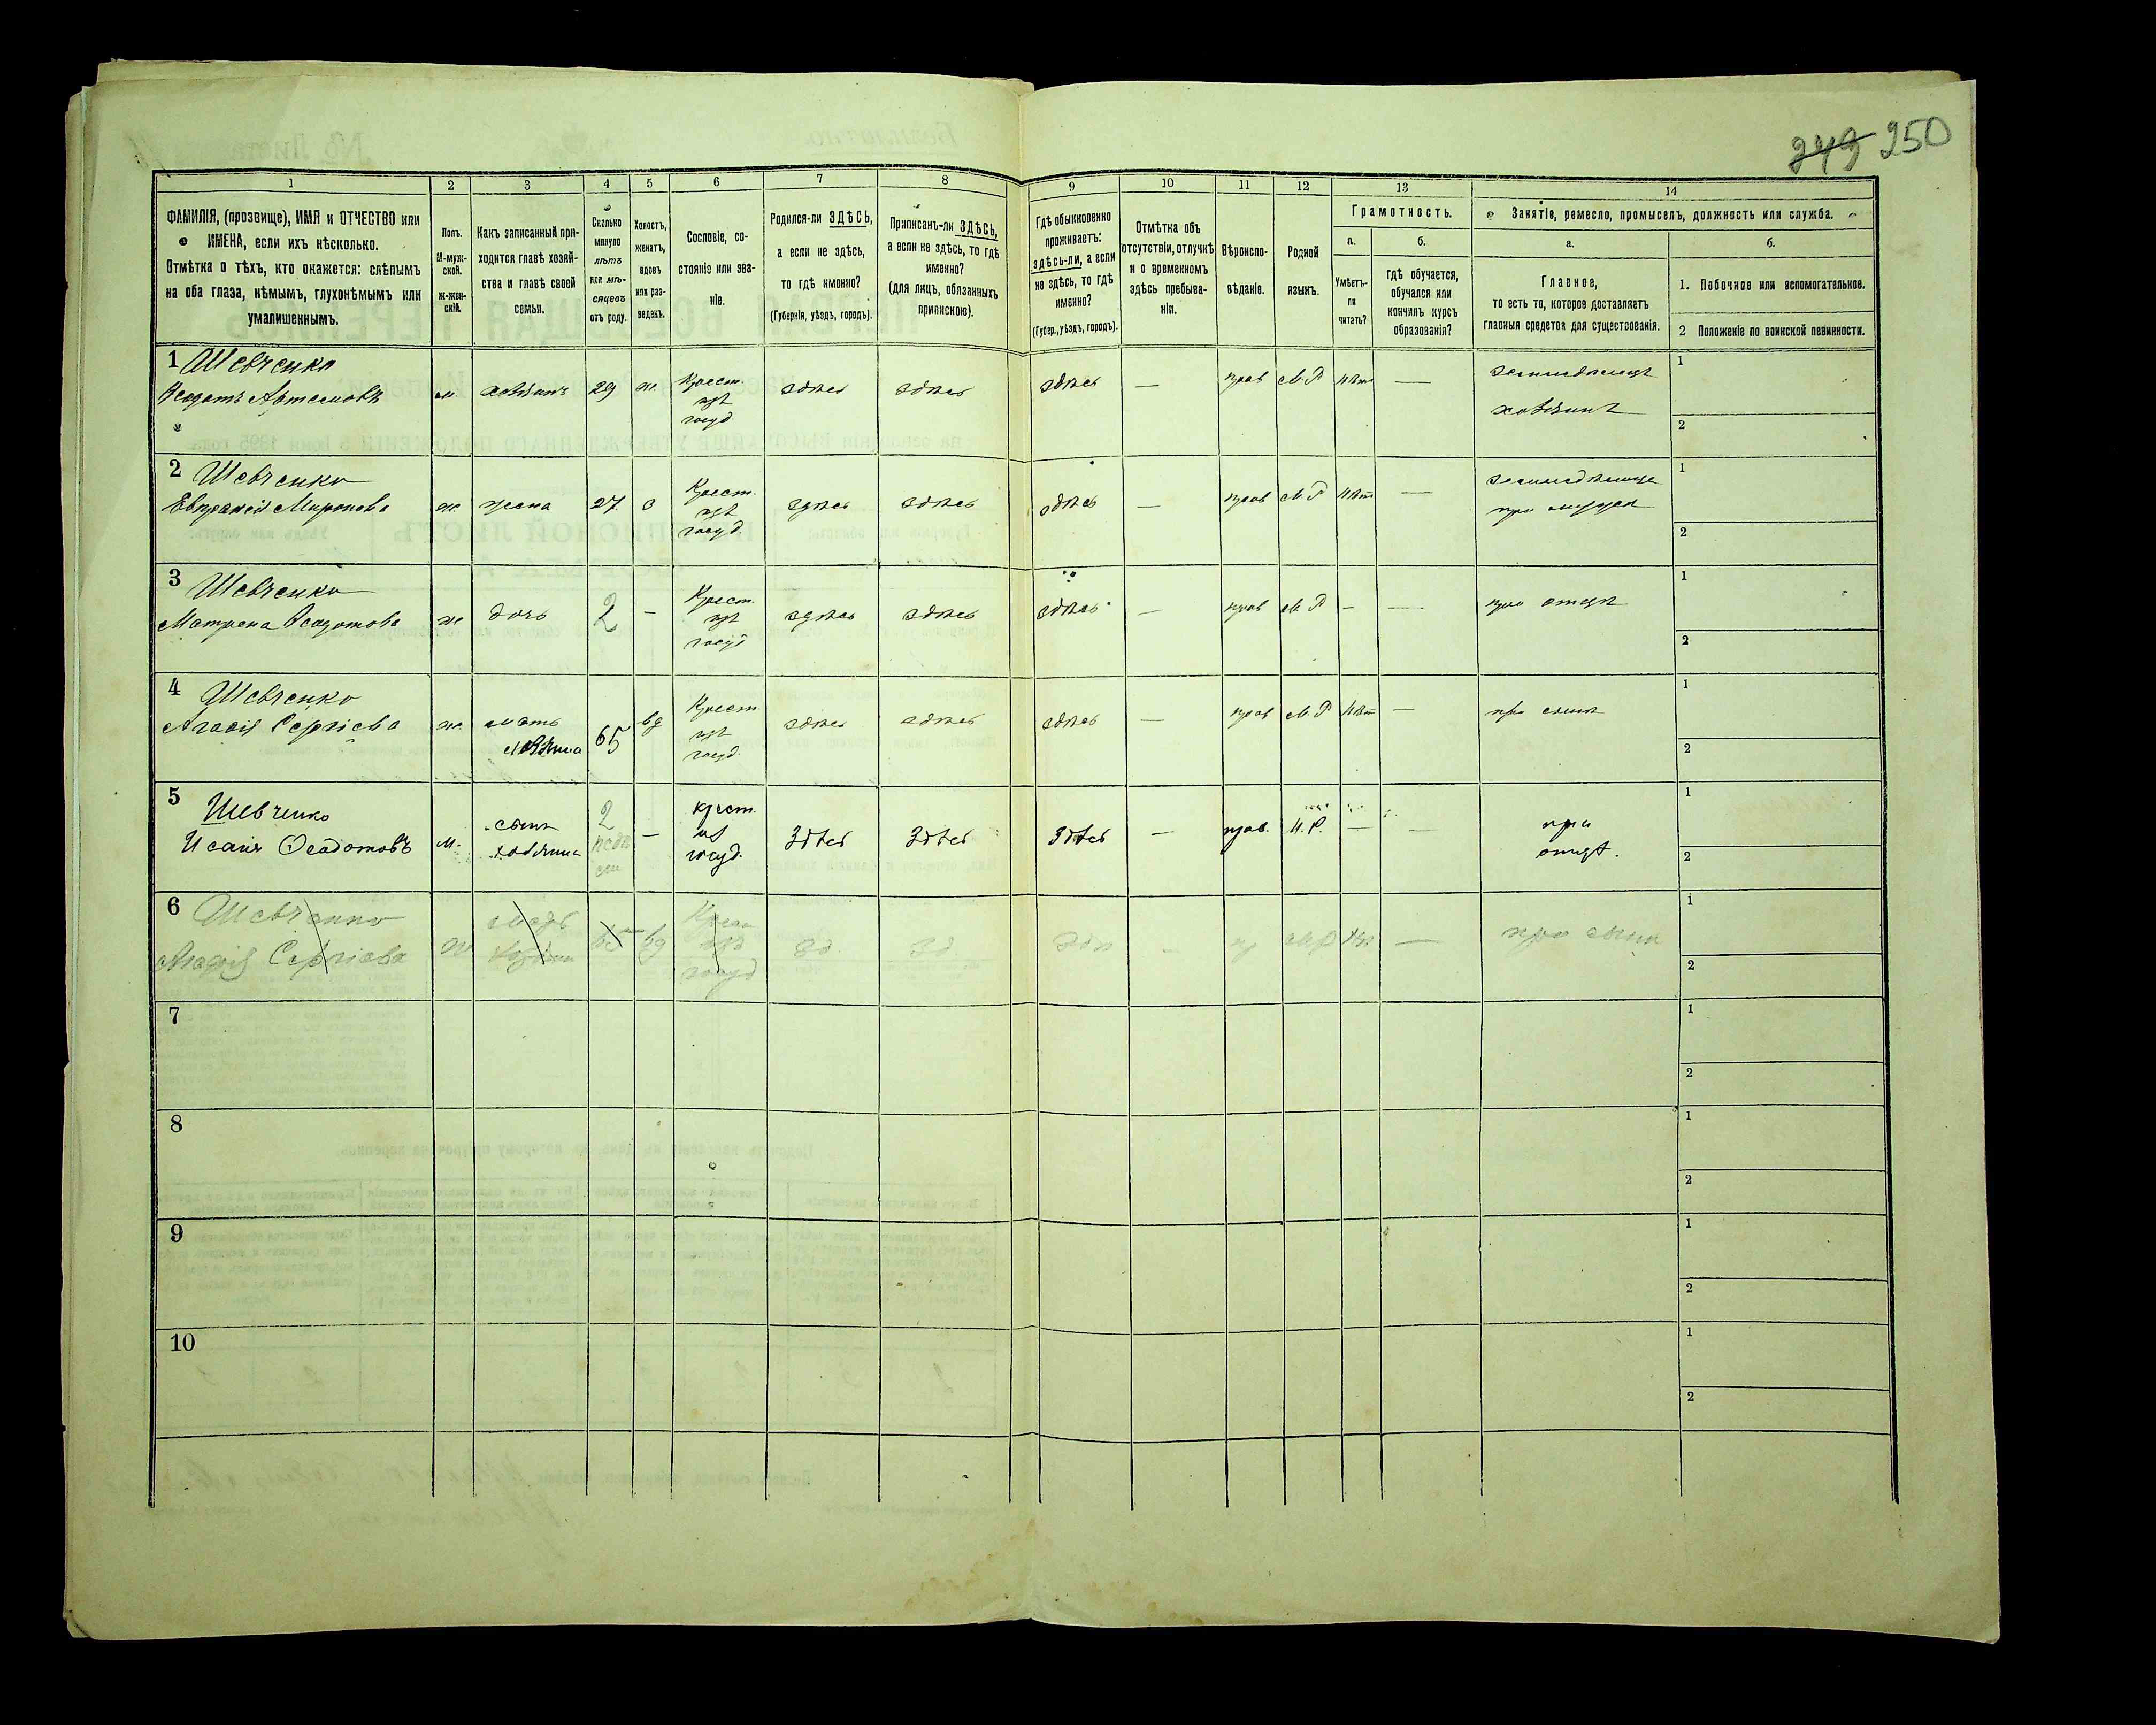 249 250
1 2 3 4 5 6 7 8 9 10 11 12 13 14
ФАМИЛІЯ, (прозвище), ИМЯ и ОТЧЕСТВО или
ИМЕНА, если ихъ нѣсколько.
Отмѣтка о тѣхъ, кто окажется: слѣпымъ
на оба глаза, нѣмымъ, глухонѣмымъ или
умалишеннымъ.
Полъ.
М-муж-
ской.
Ж-жен-
скій.
Какъ записанный при-
ходится главѣ хозяй-
ства и главѣ своей
семьи.
Сколько
минуло
лѣтъ
или мѣ-
сяцевъ
отъ роду.
Холостъ,
женатъ,
вдовъ
или раз-
веденъ.
Сословіе, со-
стояніе или зва-
ніе.
Родился-ли ЗДѢСЬ,
а если не здѣсь,
то гдѣ именно?
(Губернія, уѣздъ, городъ).
Приписанъ-ли ЗДѢСЬ,
а если не здѣсь, то гдѣ
именно?
(для лицъ, обязанныхъ
припискою).
Гдѣ обыкновенно
проживаетъ:
здѣсь-ли, а если
не здѣсь, то гдѣ
именно?
(Губер., уѣздъ, городъ).
Отмѣтка объ
отсутствіи, отлучкѣ
и о временномъ
здѣсь пребыва-
ніи.
Вѣроиспо-
вѣданіе.
Родной
языкъ.
Грамотность.
а.
Умѣетъ-
ли
читать?
б.
гдѣ обучается,
обучался или
кончилъ курсъ
образованія?
Занятіе, ремесло, промыселъ, должность или служба.
а.
Главное,
то есть то, которое доставляетъ
главныя средства для существованія.
б.
1. Побочное или вспомогательное.
2 Положеніе по воинской повинности.
1 Шевченко
Ѳедотъ Артемовъ
м. хозяинъ 29 ж. Крест.
изъ
госуд.
здѣсь здѣсь здѣсь — прав М.Р нѣт —
земледѣлецъ
хозяинъ
1
2
2 Шевченко
Евпраксія Миронова
ж жена 27 з Крест.
изъ
госуд.
здѣсь здѣсь здѣсь — прав М.Р нѣт —
при мужѣ
1
2
3 Шевченко
Матрена Ѳедотова
ж дочь 2 — Крест.
изъ
госуд
здѣсь здѣсь здѣсь — прав М.Р — —
при отцѣ
1
2
4 Шевченко
Агафія Сергіева
ж. мать
хозяина
65 вд Крест
изъ
госуд.
здѣсь здѣсь здѣсь — прав М.Р нѣт —
при сынѣ
1
2
5 Шевченко
Исаія Ѳедотовъ
м. сынъ
хозяина
2
недѣ
ли
— крест.
из
госуд.
Здѣсь Здѣсь Здѣсь — прав. М.Р. — —
при
отцѣ.
1
2
6 Шевченко
Агафія Сергіева
ж мать
хозяина
65 вд Крест
изъ
госуд
зд. зд здѣ — пр М.Р нѣт —
при сынѣ
1
2
7
1
2
8
1
2
9
1
2
10
1
2